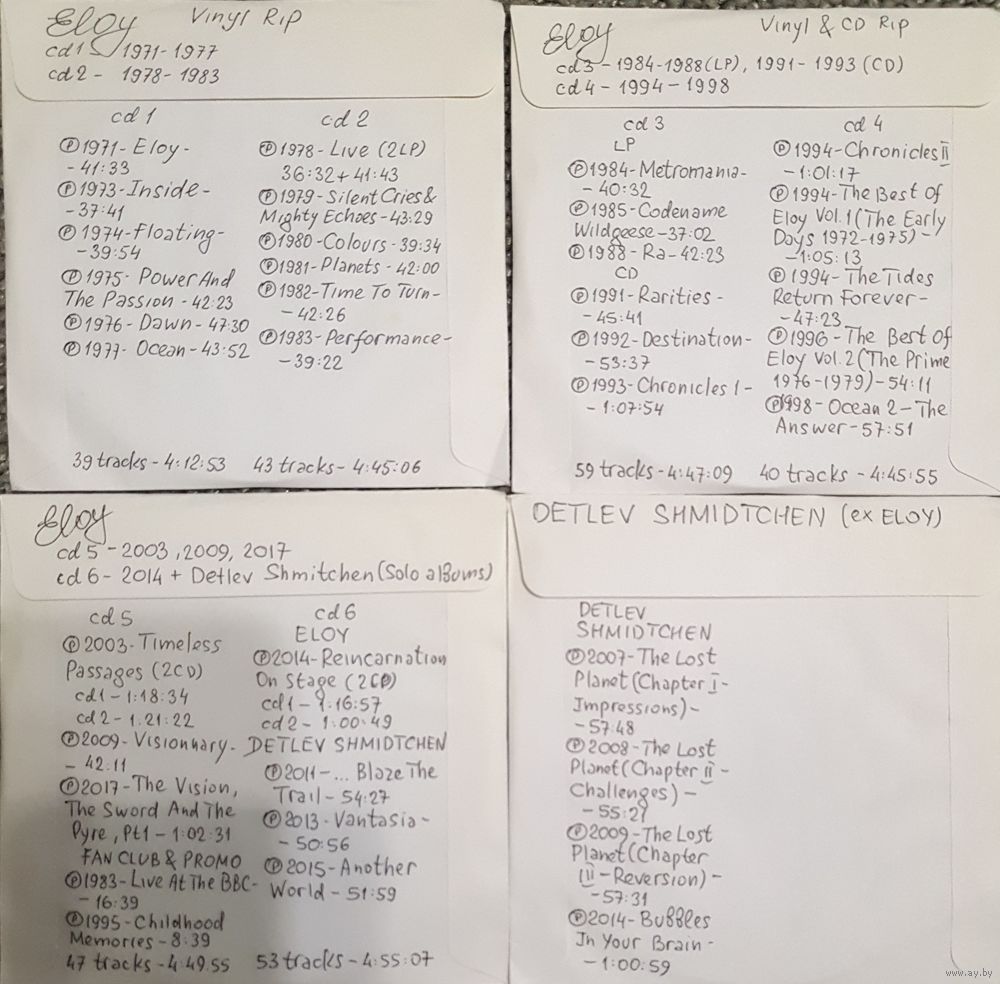 Eloy Vinyl Rip
cd 1 - 1971-1977
cd 2 - 1978-1983
cd 1
Ⓟ1971-Eloy-
-41:33
Ⓟ1973-Inside-
-37:41
Ⓟ1974-Floating-
-39:54
Ⓟ1975-Power And
The Passion-42:23
Ⓟ1976-Dawn-47:30
Ⓟ1977-Ocean-43:52
39 tracks-4:12:53
cd 2
Ⓟ1978-Live (2LP)
36:32+41:43
Ⓟ1979-Silent Cries&
Mighty Echoes-43:29
Ⓟ1980-Colours-39:34
Ⓟ1981-Planets-42:00
Ⓟ1982-Time To Turn-
-42:26
Ⓟ1983-Performance-
-39:22
43 tracks-4:45:06
Eloy Vinyl & CD Rip
cd3-1984-1988(LP), 1991-1993 (CD)
cd4-1994-1998
cd 3
LP
Ⓟ1984-Metromania-
-40:32
Ⓟ1985-Codename
Wildgeese-37:02
Ⓟ1988-Ra-42:23
CD
Ⓟ1991-Rarities-
-45:41
Ⓟ1992-Destination-
-53:37
Ⓟ1993-Chronicles I-
-1:07:54
59 tracks-4:47:09
cd 4
Ⓟ1994-Chronicles II
-1:01:17
Ⓟ1994-The Best Of
Eloy Vol.1(The Early
Days 1972-1975)-
-1:05:13
Ⓟ1994-The Tides
Return Forever-
-47:23
Ⓟ1996-The Best Of
Eloy Vol.2(The Prime
1976-1979)-54:11
Ⓟ1998-Ocean 2-The
Answer-57:51
40 tracks-4:45:55
Eloy
cd 5-2003,2009,2017
cd 6-2014+Detlev Shmitchen(Solo albums)
cd 5
Ⓟ2003-Timeless
Passages (2CD)
cd1-1:18:34
cd2-1:21:22
Ⓟ2009-Visionnary-
-42:11
Ⓟ2017-The Vision,
The Sword And The
Pyre, Pt1-1:02:31
FAN CLUB & PROMO
Ⓟ1983-Live At The BBC-
-16:39
Ⓟ1995-Childhood
Memories-8:39
47 tracks-4:49:55
cd 6
ELOY
Ⓟ2014-Reincarnation
On Stage (2CD)
cd1-1:16:57
cd2-1:00:49
DETLEV SHMIDTCHEN
Ⓟ2011-... Blaze The
Trail-54:27
Ⓟ2013-Vantasia-
-50:56
Ⓟ2015-Another
World-51:59
53 tracks-4:55:07
DETLEV SHMIDTCHEN (ex ELOY)
DETLEV
SHMIDTCHEN
Ⓟ2007-The Lost
Planet(Chapter I-
Impressions)-
-57:48
Ⓟ2008-The Lost
Planet(Chapter II-
Challenges)-
-55:27
Ⓟ2009-The Lost
Planet(Chapter
III-Reversion)-
-57:31
Ⓟ2014-Bubbles
In Your Brain-
-1:00:59
www.ay.by